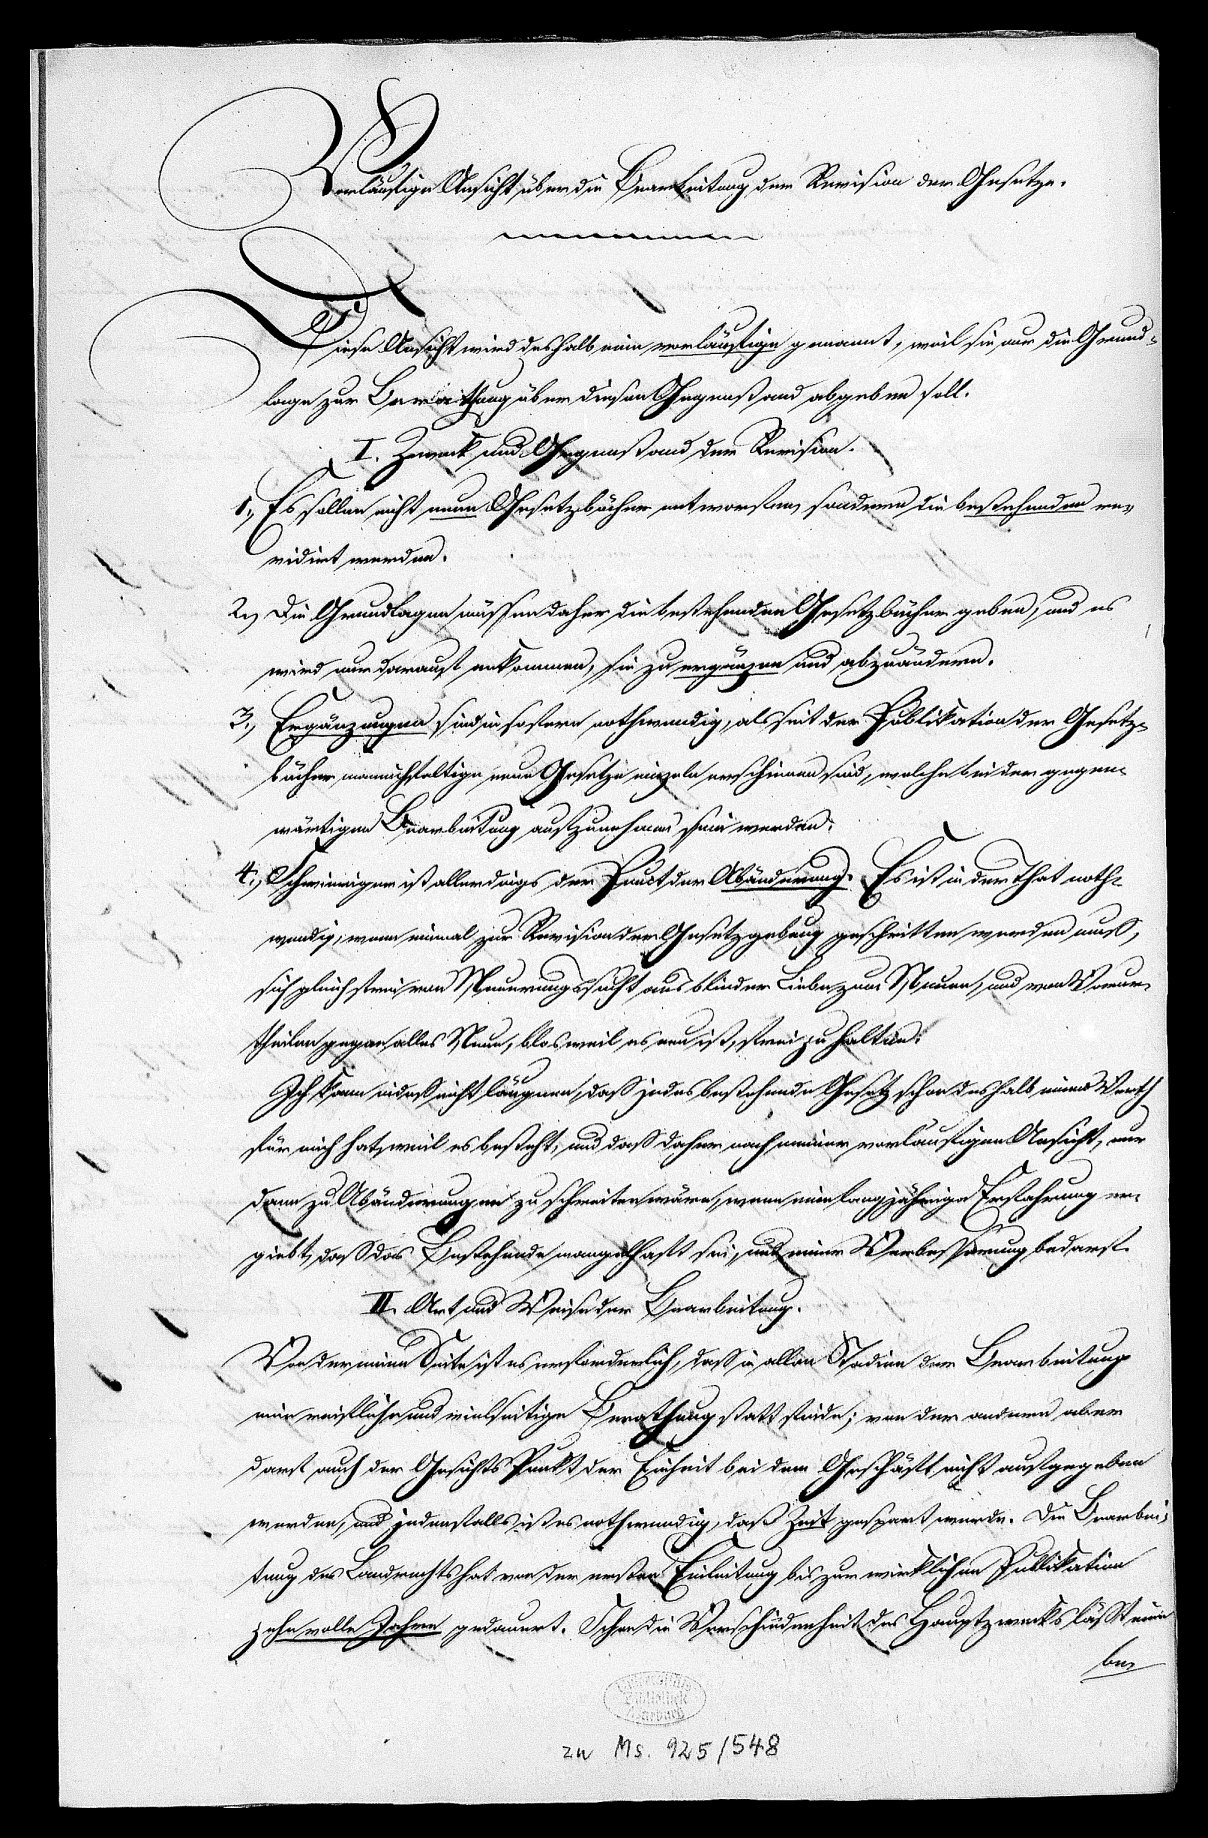 Vorläufige Ansicht über die Bearbeitung der Revision der Gesetze.
Diese Ansicht wird deshalb eine vorläufige genannt, weil sie nur die Grund-
lage zur Berathung über diesen Gegenstand abgeben soll.
I. Zweck und Gegenstand der Revision.
1., Es sollen nicht neue Gesetzbücher entworfen, sondern die bestehenden re-
vidirt werden.
2., Die Grundlagen müssen daher die bestehenden Gesetzbücher geben, und es
wird nur darauf ankommen, sie zu ergänzen und abzuändern.
3., Ergänzungen sind in sofern nothwendig, als seit der Publikation der Gesetz-
bücher, mannichfaltige neue Gesetze einzeln erschienen sind, welche bei der gegen-
wärtigen Bearbeitung aufzunehmen sein werden.
4., Schwieriger ist allerdings der Punct der Abänderung. Es ist in der That noth-
wendig, wenn einmal zur Revision der Gesetzgebung geschritten werden muß,
sich gleich frei von Neuerungssucht aus blinder Liebe zum Neuen, und von Vorur-
theilen gegen alles Neue, blos weil es neu ist, frei zu halten.
Ich kann indeß nicht läugnen, daß jedes bestehende Gesetz schon deshalb einen Werth
für mich hat, weil es besteht, und daß daher nach meiner vorläufigen Ansicht, nur
dann zu Abänderungen zu schreiten wäre, wenn eine langjährige Erfahrung er-
giebt, daß das Bestehende mangelhaft sei, und einer Verbesserung bedarf.
II. Art und Weise der Bearbeitung.
Von der einen Seite ist es erforderlich, daß in allen Stadien der Bearbeitung
eine reifliche und vielseitige Berathung statt finde; von der andern aber
darf auch der Gesichts Punkt der Einheit bei dem Geschäft nicht aufgegeben
werden, und jedenfalls ist es nothwendig, daß Zeit gespart werde. Die Bearbei-
tung des Landrechts hat von der ersten Einleitung bis zur wirklichen Publikation
zehn volle Jahre gedauert. Schon die Verschiedenheit des Hauptzwecks läßt eine
be-
Bibliothek
Marburg
zu Ms. 925/548